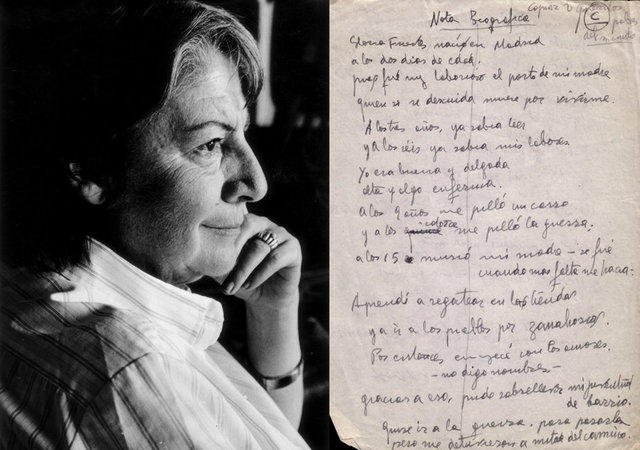 Nota Biográfica
copiar
C
Gloria Fuertes nació en Madrid
a los dos días de edad,
pues fué muy laborioso el parto de mi madre
que si se descuida muere por vivirme.
A los tres años, ya sabía leer
y a los seis ya sabía mis labores
Yo era buena y delgada
alta y algo enferma.
a los 9 años me pilló un carro
y a los catorce me pilló la guerra.
a los 15 murió mi madre - se fué
cuando más falta me hacía.
Aprendí a regatear en las tiendas
y a ir a los pueblos por zanahorias.
Por entonces empecé con los amores.
- no digo nombres -
gracias a eso, pude sobrellevar mi juventud
de barrio.
Quise ir a la guerra, para pararla
pero me detuvieron a mitad del camino.